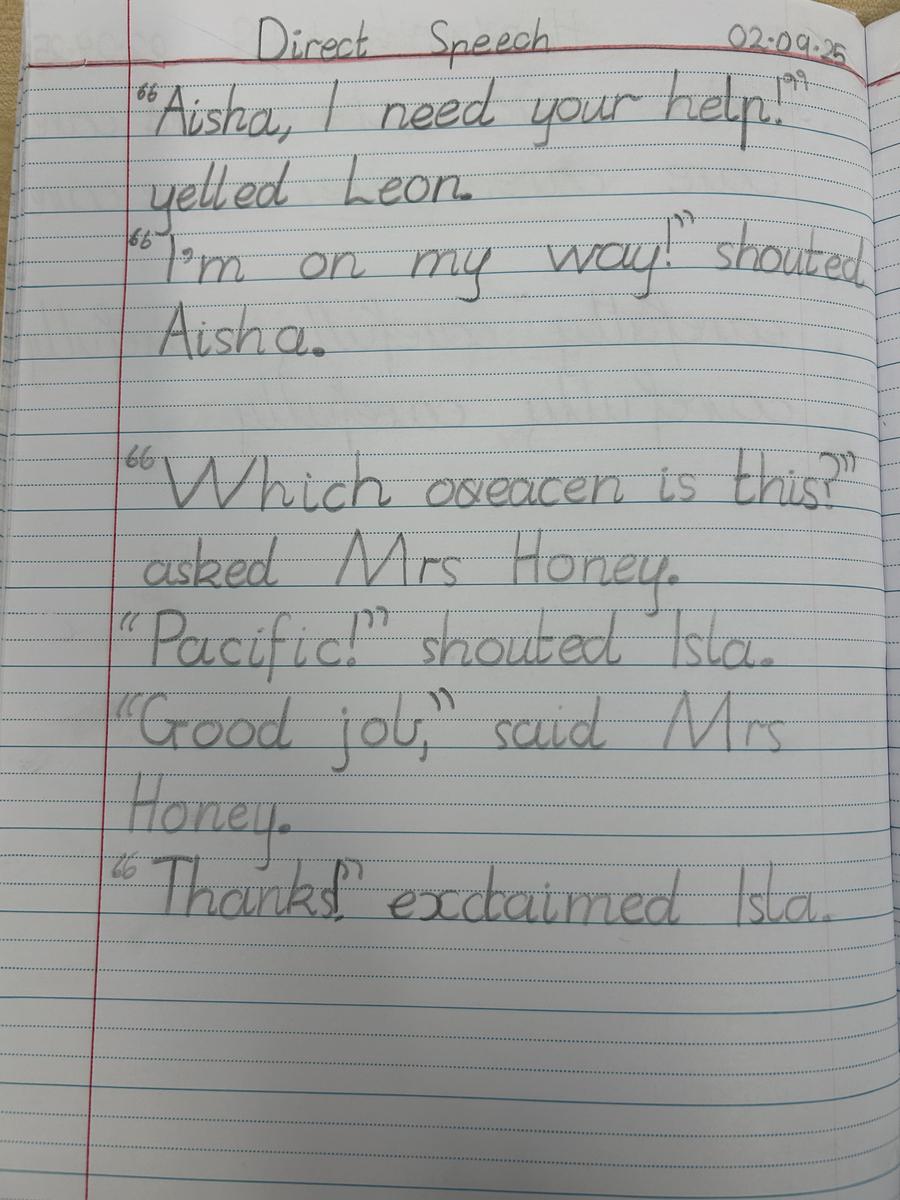 Direct Speech 02.09.25
“Aisha, I need your help!”
yelled Leon.
“I'm on my way!” shouted
Aisha.
“Which oseacen is this?”
asked Mrs Honey.
“Pacific!” shouted Isla.
“Good job,” said Mrs
Honey.
“Thanks!” exclaimed Isla.